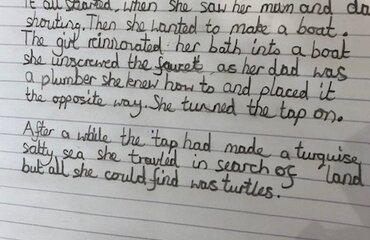 it all started, when she saw her mum and da
shouting. Then she wanted to make a boat.
The girl rinnovated her both into a boat
she unscrewed the faucet, as her dad was
a plumber she knew how to and placed it
the opposite way. She turned the tap on.
After a while the tap had made a turquise,
salty sea she travled in search of land
but all she could find was turtles.